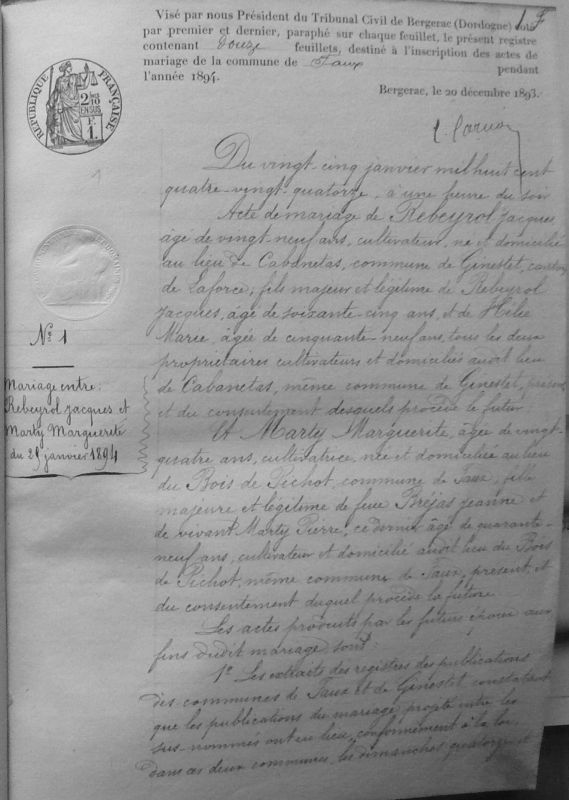 1 F
Visé par nous Président du Tribunal Civil de Bergerac (Dordogne) coté
par premier et dernier, paraphé sur chaque feuillet, le présent registre
contenant douze feuillets, destiné à l'inscription des actes de
mariage de la commune de Faux pendant
l'année 1894.
Bergerac, le 20 décembre 1893.
RÉPUBLIQUE FRANÇAISE
2/10 EN SUS
F. 1
Du vingt-cinq janvier mil huit cent
quatre-vingt-quatorze, à une heure du soir
Acte de mariage de Rebeyrol Jacques,
âgé de vingt-neuf ans, cultivateur, né et domicilié
au lieu de Cabanetas, commune de Ginestet, canton
de Laforce, fils majeur et légitime de Rebeyrol
Jacques, âgé de soixante-cinq ans, et de
Marie, âgée de cinquante-neuf ans, tous les deux
propriétaires cultivateurs et domiciliés audit lieu
de Cabanetas, même commune de Ginestet, présents
et du consentement desquels procède le futur
Et Marty Marguerite, âgée de vingt-
quatre ans, cultivatrice, née et domiciliée au lieu
du Bois de Pichot, commune de Faux, fille
majeure et légitime de feue Brejas Jeanne et
de vivant Marty Pierre, ce dernier âgé de quarante-
neuf ans, cultivateur et domicilié audit lieu du Bois
de Pichot, même commune de Faux, présent, et
du consentement duquel procède la future
Les actes produits par les futurs époux aux
fins dudit mariage, sont
1º Les extraits des registres des publications
des communes de Faux et de Ginestet constatant
que les publications du mariage projeté entre les
sus-nommés ont eu lieu, conformément à la loi,
dans ces deux communes, les dimanches quatorze et
Nº 1
Mariage entre:
Rebeyrol Jacques et
Marty Marguerite
du 25 janvier 1894